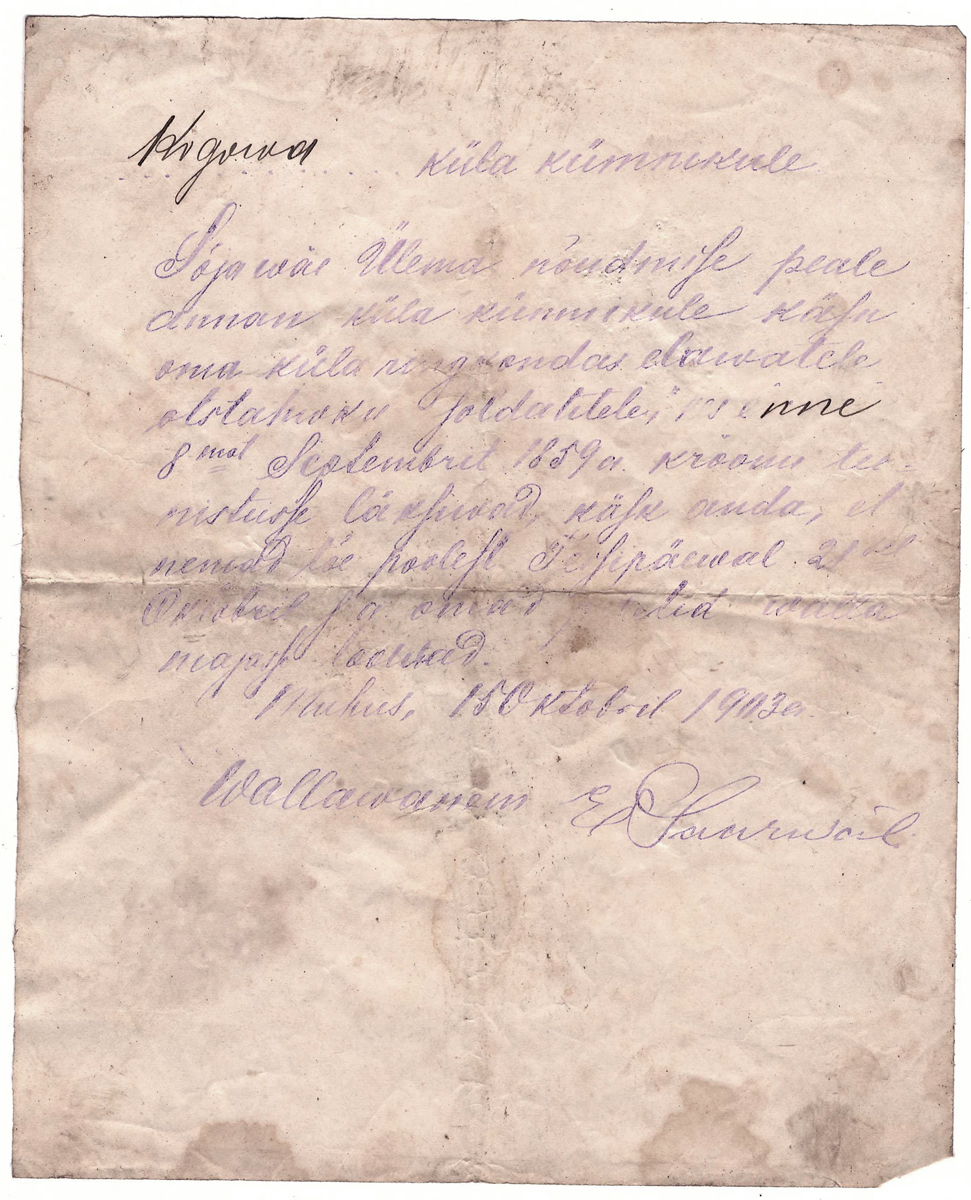 Kogowa küla kümnikule
Sõjawäe Ülema nõudmise peale
annan küla kümnikule käsu
oma küla ringkondas elawatele
otstahwku soldatitele, kes enne
8 mat Septembrit 1859 a. kroonu tee-
nistusse läksiwad, käsk anda, et
nemad tõe poolest Teisipäewal 21sel
Oktobril s. a. omad piletid walla
majasse toowad.
Muhus, 15 Oktobril 1903 a.
Wallawanem E